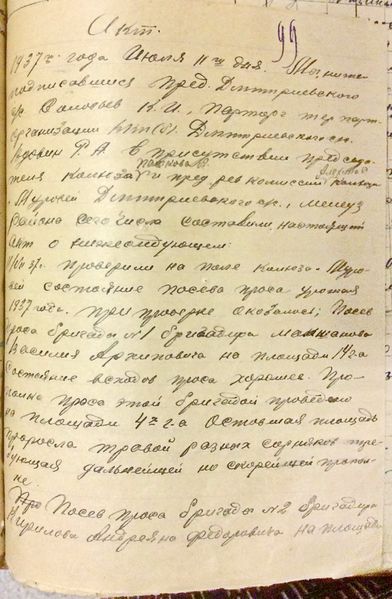 99
Акт.
1937 г. года Июля 11 го дня. Мы ниже
подписавшиеся пред. Дмитриевского
с/с Соловьев К.И., Парторг тер парт
организации ВКП(б) Дмитриевского с/с
Вдовин Г. А. в присутствии председа
теля колхоза и пред рев комиссии колхоза
Дмитриевского с/с, Мелеуз
Района сего числа составили настоящий
акт о нижеследующем:
проверили на поле колхоза
состояние посева проса урожая
1937 года. При проверке оказалось; Посев
проса бригады №1 бригадира
Василия Архиповича на площади 14 га
состояние всходов проса хорошее. Про-
полка проса этой бригадой проведено
на площади 4 га Оставшая площадь
проросла травой разных сорняков тре-
бующая дальнейшей но скорейшей пропол-
ке.
Посев проса бригады №2 бригадира
Кирилова Андреяна Федоровича на площади